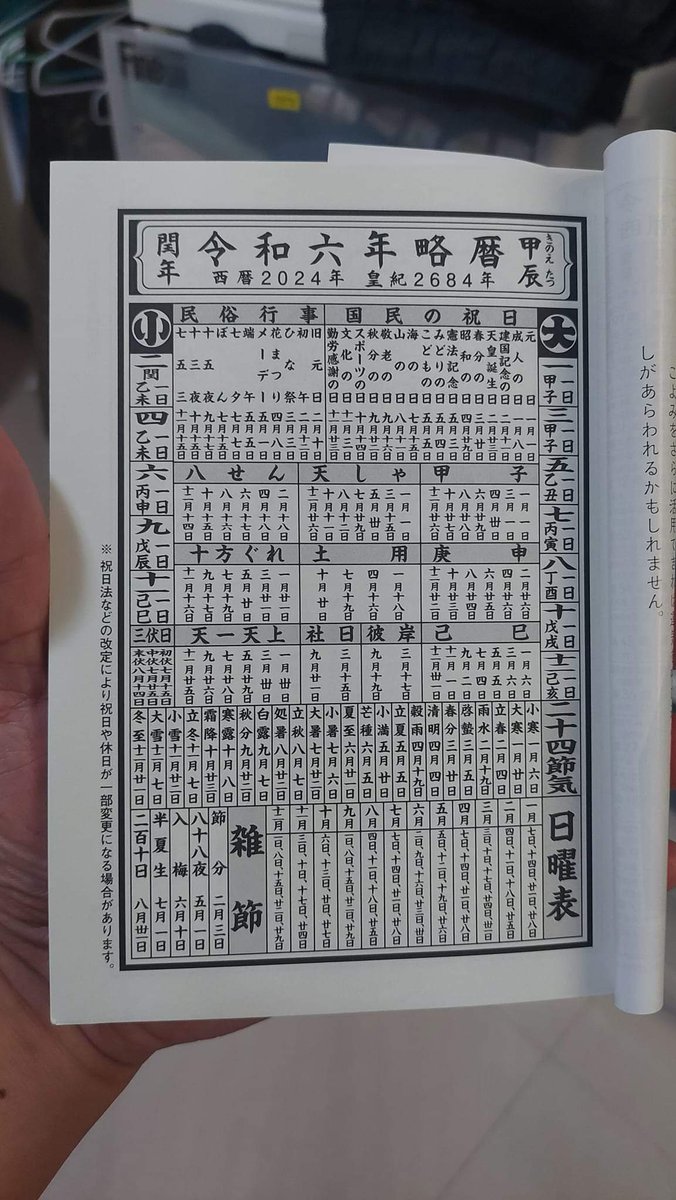 閏年 令和六年略暦 甲辰
きのえ たつ
西暦2024年 皇紀2684年
大
一 一日 甲子
三 一日 甲子
五 一日 乙丑
七 一日 丙寅
八 一日 丁酉
十 一日 戊戌
十二 一日 己亥
国民の祝日
元日 一月一日
成人の日 一月八日
建国記念の日 二月十一日
天皇誕生日
春分の日
昭和の日 四月廿九日
憲法記念日 五月三日
みどりの日 五月四日
こどもの日 五月五日
海の日 七月十五日
山の日 八月十一日
敬老の日 九月十六日
秋分の日 九月廿二日
スポーツの日 十月十四日
文化の日 十一月三日
勤労感謝の日 十一月廿三日
民俗行事
旧元日 二月十日
初午
ひな祭 三月三日
花まつり 四月八日
メーデー 五月一日
端午 五月五日
七夕 七月七日
ぼん 七月十五日
十五夜 九月十七日
十三夜 十月十五日
七五三 十一月十五日
小
二 閏 一日 乙未
四 一日 乙未
六 一日 丙申
九 一日 戊辰
十一 一日 己巳
甲子
一月一日
三月一日
四月卅日
六月廿九日
八月廿八日
十月廿七日
十二月廿六日
天しゃ
一月一日
三月十五日
五月卅日
八月十二日
十月十一日
十二月廿六日
八せん
二月十八日
四月十八日
六月十七日
八月十六日
十月十五日
十二月十四日
庚申
二月廿六日
四月廿六日
六月廿五日
八月廿四日
十月廿三日
十二月廿二日
土用
一月十八日
四月十六日
七月十九日
十月廿日
十方ぐれ
一月廿一日
三月廿一日
五月廿日
七月十九日
九月十七日
十一月十六日
己巳
一月六日
三月六日
五月五日
七月四日
九月二日
十一月一日
十二月卅一日
彼岸
三月十七日
九月十九日
社日
三月十五日
九月廿一日
天一天上
一月卅日
三月卅日
五月廿九日
七月廿八日
九月廿六日
十一月廿五日
三伏日
初伏七月十五日
中伏七月廿五日
末伏八月十四日
二十四節気
小寒 一月六日
大寒 一月廿日
立春 二月四日
雨水 二月十九日
啓蟄 三月五日
春分 三月廿日
清明 四月四日
穀雨 四月十九日
立夏 五月五日
小満 五月廿日
芒種 六月五日
夏至 六月廿一日
小暑 七月六日
大暑 七月廿二日
立秋 八月七日
処暑 八月廿二日
白露 九月七日
秋分 九月廿二日
寒露 十月八日
霜降 十月廿三日
立冬 十一月七日
小雪 十一月廿二日
大雪 十二月七日
冬至 十二月廿一日
日曜表
一月 七日、十四日、廿一日、廿八日
二月 四日、十一日、十八日、廿五日
三月 三日、十日、十七日、廿四日、卅一日
四月 七日、十四日、廿一日、廿八日
五月 五日、十二日、十九日、廿六日
六月 二日、九日、十六日、廿三日、卅日
七月 七日、十四日、廿一日、廿八日
八月 四日、十一日、十八日、廿五日
九月 一日、八日、十五日、廿二日、廿九日
十月 六日、十三日、廿日、廿七日
十一月 三日、十日、十七日、廿四日
十二月 一日、八日、十五日、廿二日、廿九日
雑節
節分 二月三日
八十八夜 五月一日
入梅 六月十日
半夏生 七月一日
二百十日 八月卅一日
※ 祝日法などの改定により祝日や休日が一部変更になる場合があります。
しがあらわれるかもしれません。